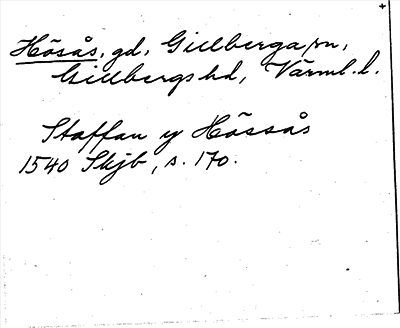 Hösås, gd, Gillberga sn,
Gillbergs hd, Värml. l.
Staffan y Hössås
1540 Skjb, s. 170.